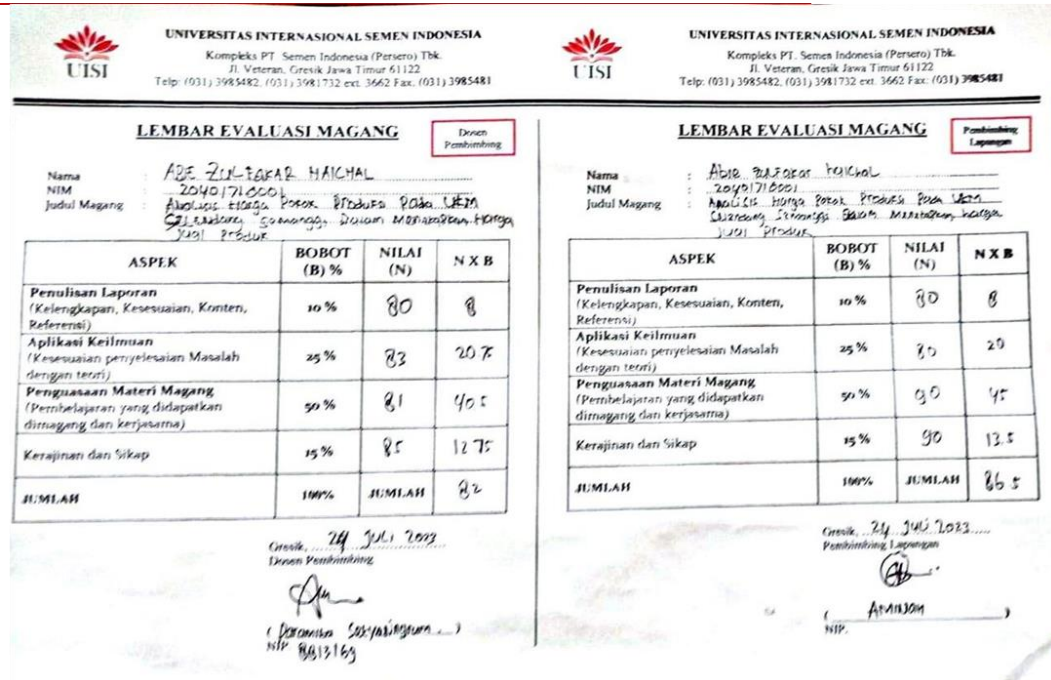 UISI
UNIVERSITAS INTERNASIONAL SEMEN INDONESIA
Kompleks PT. Semen Indonesia (Persero) Tbk.
Jl. Veteran, Gresik Jawa Timur 61122
Telp: (031) 3985482, (031) 3981732 ext. 3662 Fax: (031) 3985481
LEMBAR EVALUASI MAGANG
Dosen
Pembimbing
Nama : ABE ZULFAKAR HAICHAL
NIM : 2040171 0001
Judul Magang : Analisis Harga Pokok Produksi Pada UKM
Semanggi Dalam Menetapkan Harga
Jual Produk
ASPEK BOBOT (B) % NILAI (N) N X B
Penulisan Laporan
(Kelengkapan, Kesesuaian, Konten, 10 % 80 8
Referensi)
Aplikasi Keilmuan
(Kesesuaian penyelesaian Masalah 25 % 83 20.75
dengan teori)
Penguasaan Materi Magang
(Pembelajaran yang didapatkan 50 % 81 40.5
dimagang dan kerjasama)
Kerajinan dan Sikap 15 % 85 12.75
JUMLAH 100% JUMLAH 82
Gresik, 24 JULI 2023
Dosen Pembimbing
NIP 8813169
UISI
UNIVERSITAS INTERNASIONAL SEMEN INDONESIA
Kompleks PT. Semen Indonesia (Persero) Tbk.
Jl. Veteran, Gresik Jawa Timur 61122
Telp: (031) 3985482, (031) 3981732 ext. 3662 Fax: (031) 3985481
LEMBAR EVALUASI MAGANG
Pembimbing
Lapangan
Nama : Abie Haichal
NIM : 2040171 0001
Judul Magang : Analisis Harga Pokok Produksi Pada UKM
Semanggi Dalam Menetapkan harga
Jual Produk
ASPEK BOBOT (B) % NILAI (N) N X B
Penulisan Laporan
(Kelengkapan, Kesesuaian, Konten, 10 % 80 8
Referensi)
Aplikasi Keilmuan
(Kesesuaian penyelesaian Masalah 25 % 80 20
dengan teori)
Penguasaan Materi Magang
(Pembelajaran yang didapatkan 50 % 90 45
dimagang dan kerjasama)
Kerajinan dan Sikap 15 % 90 13.5
JUMLAH 100% JUMLAH 86.5
Gresik, 24 JULI 2023
Pembimbing Lapangan
( AMINAH )
NIP.